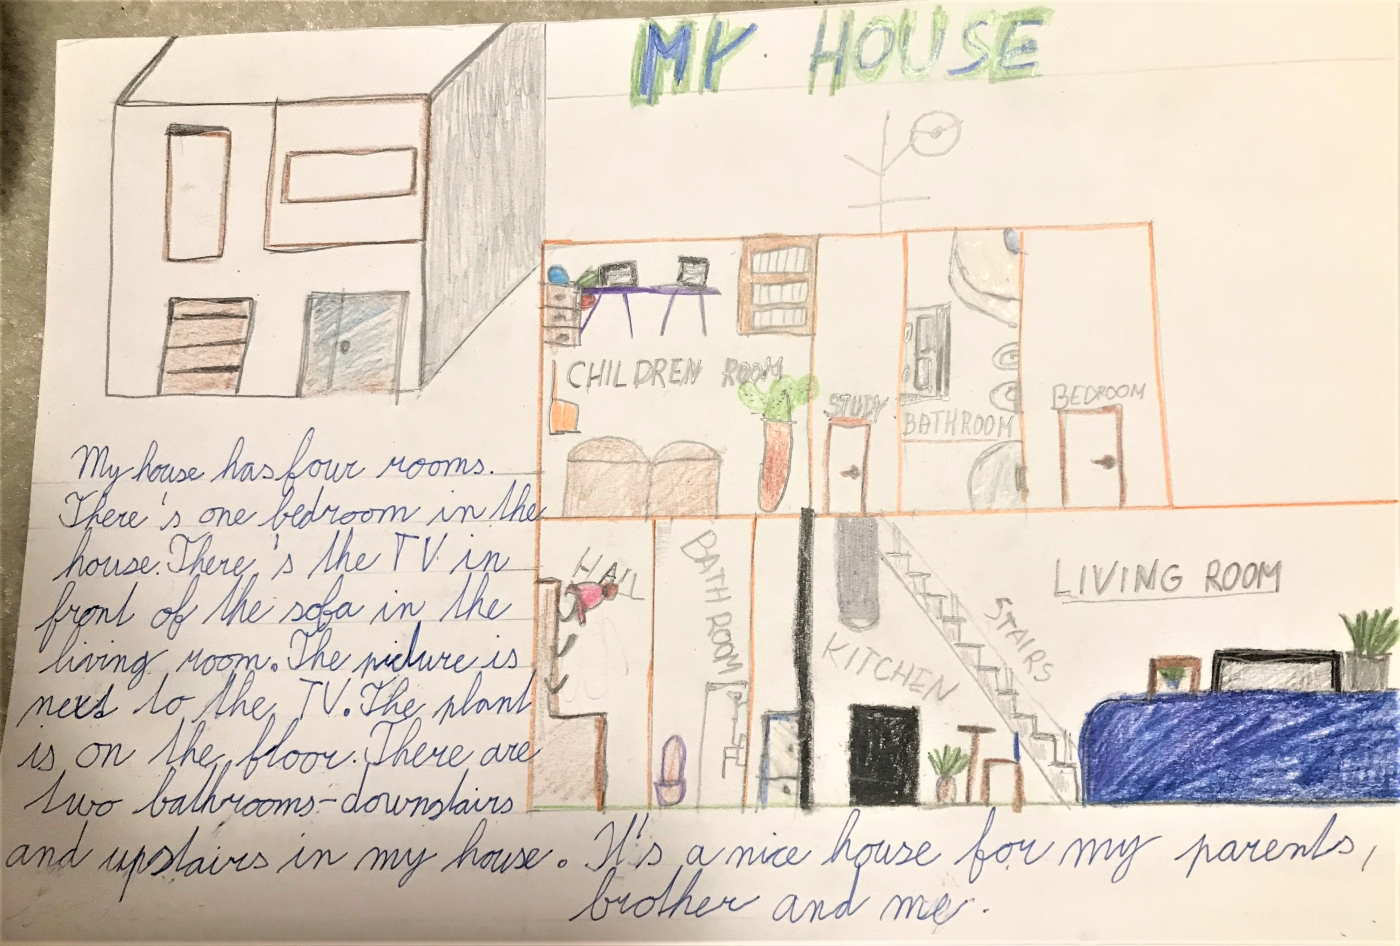 MY HOUSE
CHILDREN ROOM
STUDY
BATHROOM
BEDROOM
HALL
BATHROOM
KITCHEN
STAIRS
LIVING ROOM
My house has four rooms.
There's one bedroom in the
house. There's the TV in
front of the sofa in the
living room. The picture is
next to the TV. The plant
is on the floor. There are
two bathrooms-downstairs
and upstairs in my house. It's a nice house for my parents,
brother and me.